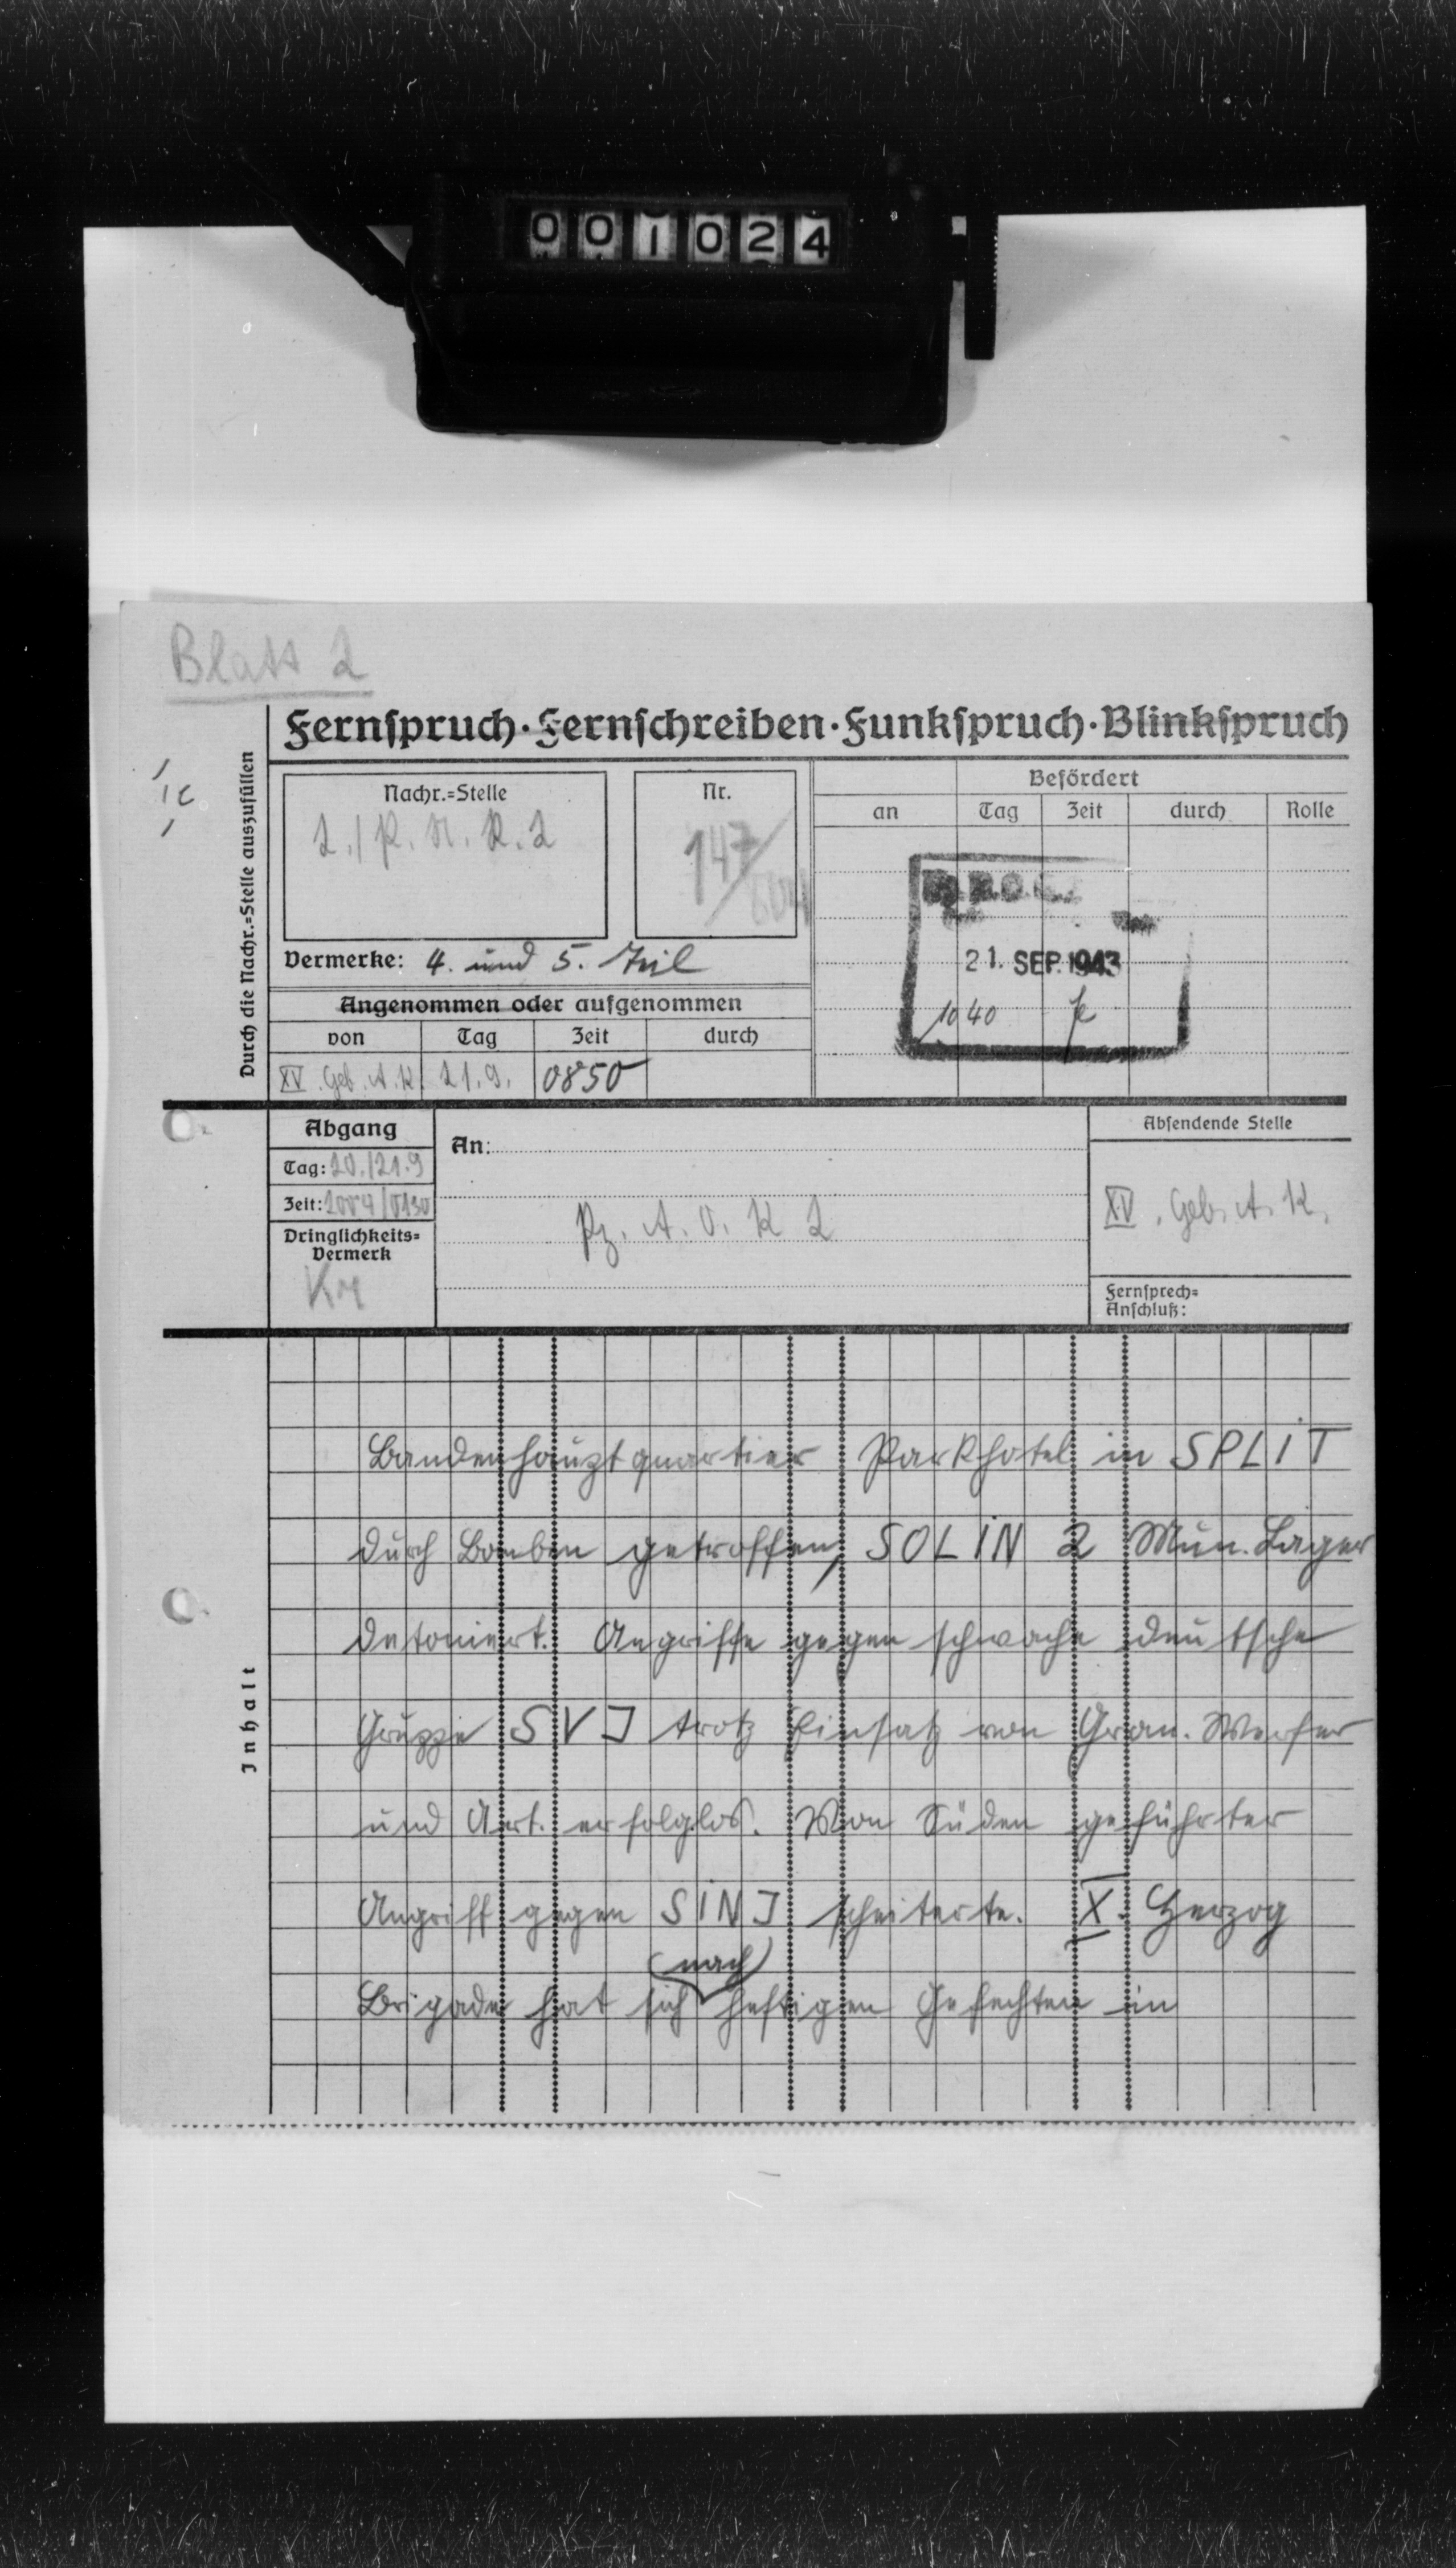 001024
Blatt 2
Fernspruch·Fernschreiben·Funkspruch·Blinkspruch
Durch die Nachr.=Stelle auszufüllen
Ic
Nachr.=Stelle
2./P. N. R. 2
Nr.
147
604
Vermerke: 4. und 5. Teil
Angenommen oder aufgenommen
von Tag Zeit durch
XV. Geb. A. K. 21.9. 0850
Befördert
an Tag Zeit durch Rolle
21. SEP. 1943
10 40
Abgang
Tag: 20./21.9
Zeit: 2004/0130
Dringlichkeits=
Vermerk
Kr
An:
Pz. A. O. K 2
Absendende Stelle
XV. Geb. A. K.
Fernsprech=
Anschluß:
Inhalt
Bandenhauptquartier Parkhotel in SPLIT
durch Bomben getroffen, SOLIN 2 Mun. Lager
detoniert. Angriffe gegen schwache deutsche
Gruppe SVJ trotz Einsatz von Gran. Werfer
und Art. erfolglos. Von Süden geführter
Angriff gegen SINJ scheiterte. X. Herzog
(nach)
Brigade hat sich heftigen Gefechten in